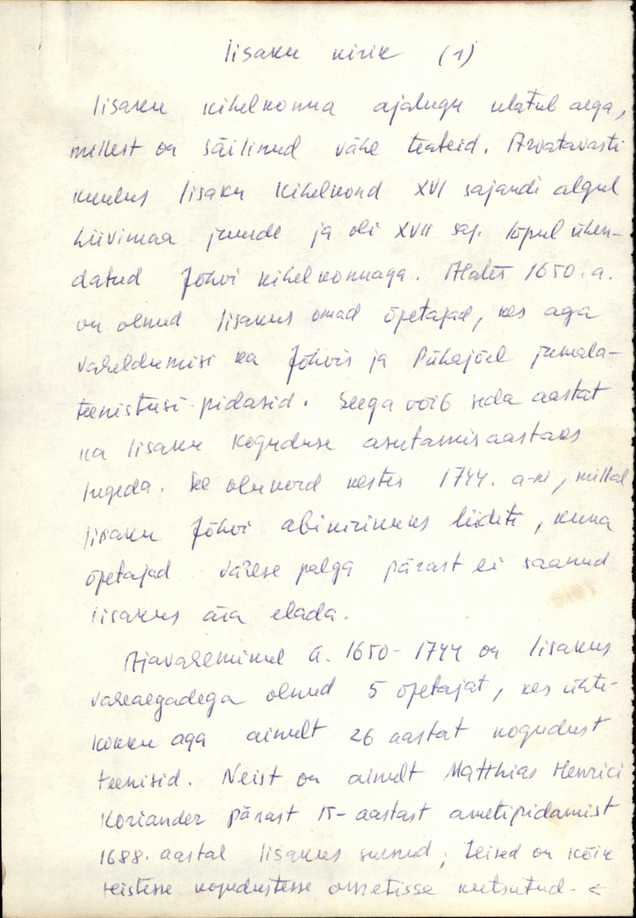 Iisaku kirik (1)
Iisaku kihelkonna ajalugu ulatub aega,
millest on säilinud vähe teateid. Arvatavasti
kuulus Iisaku kihelkond XVI sajandi algul
Liivimaa juurde ja oli XVII saj. lõpul ühen-
datud Jõhvi kihelkonnaga. Alates 1650. a.
on olnud Iisakus omad õpetajad, kes aga
vaheldumisi ka Jõhvis ja Pühajõel jumala-
teenistusi pidasid. Seega võib seda aastat
ka Iisaku koguduse asutamisaastaks
lugeda. See olukord kestis 1744. a-ni, millal
Iisaku Jõhvi abikirikuks liideti, kuna
õpetajad väikese palga pärast ei saanud
Iisakus ära elada.
Ajavahemikul a. 1650-1744 on Iisakus
vaheaegadega olnud 5 õpetajat, kes ühte-
kokku aga ainult 26 aastat kogudust
teenisid. Neist on ainult Matthias Henrici
Koriander pärast 15-aastast ametipidamist
1688. aastal Iisakus surnud, teised on kõik
teistesse kogudustesse ametisse kutsutud. <